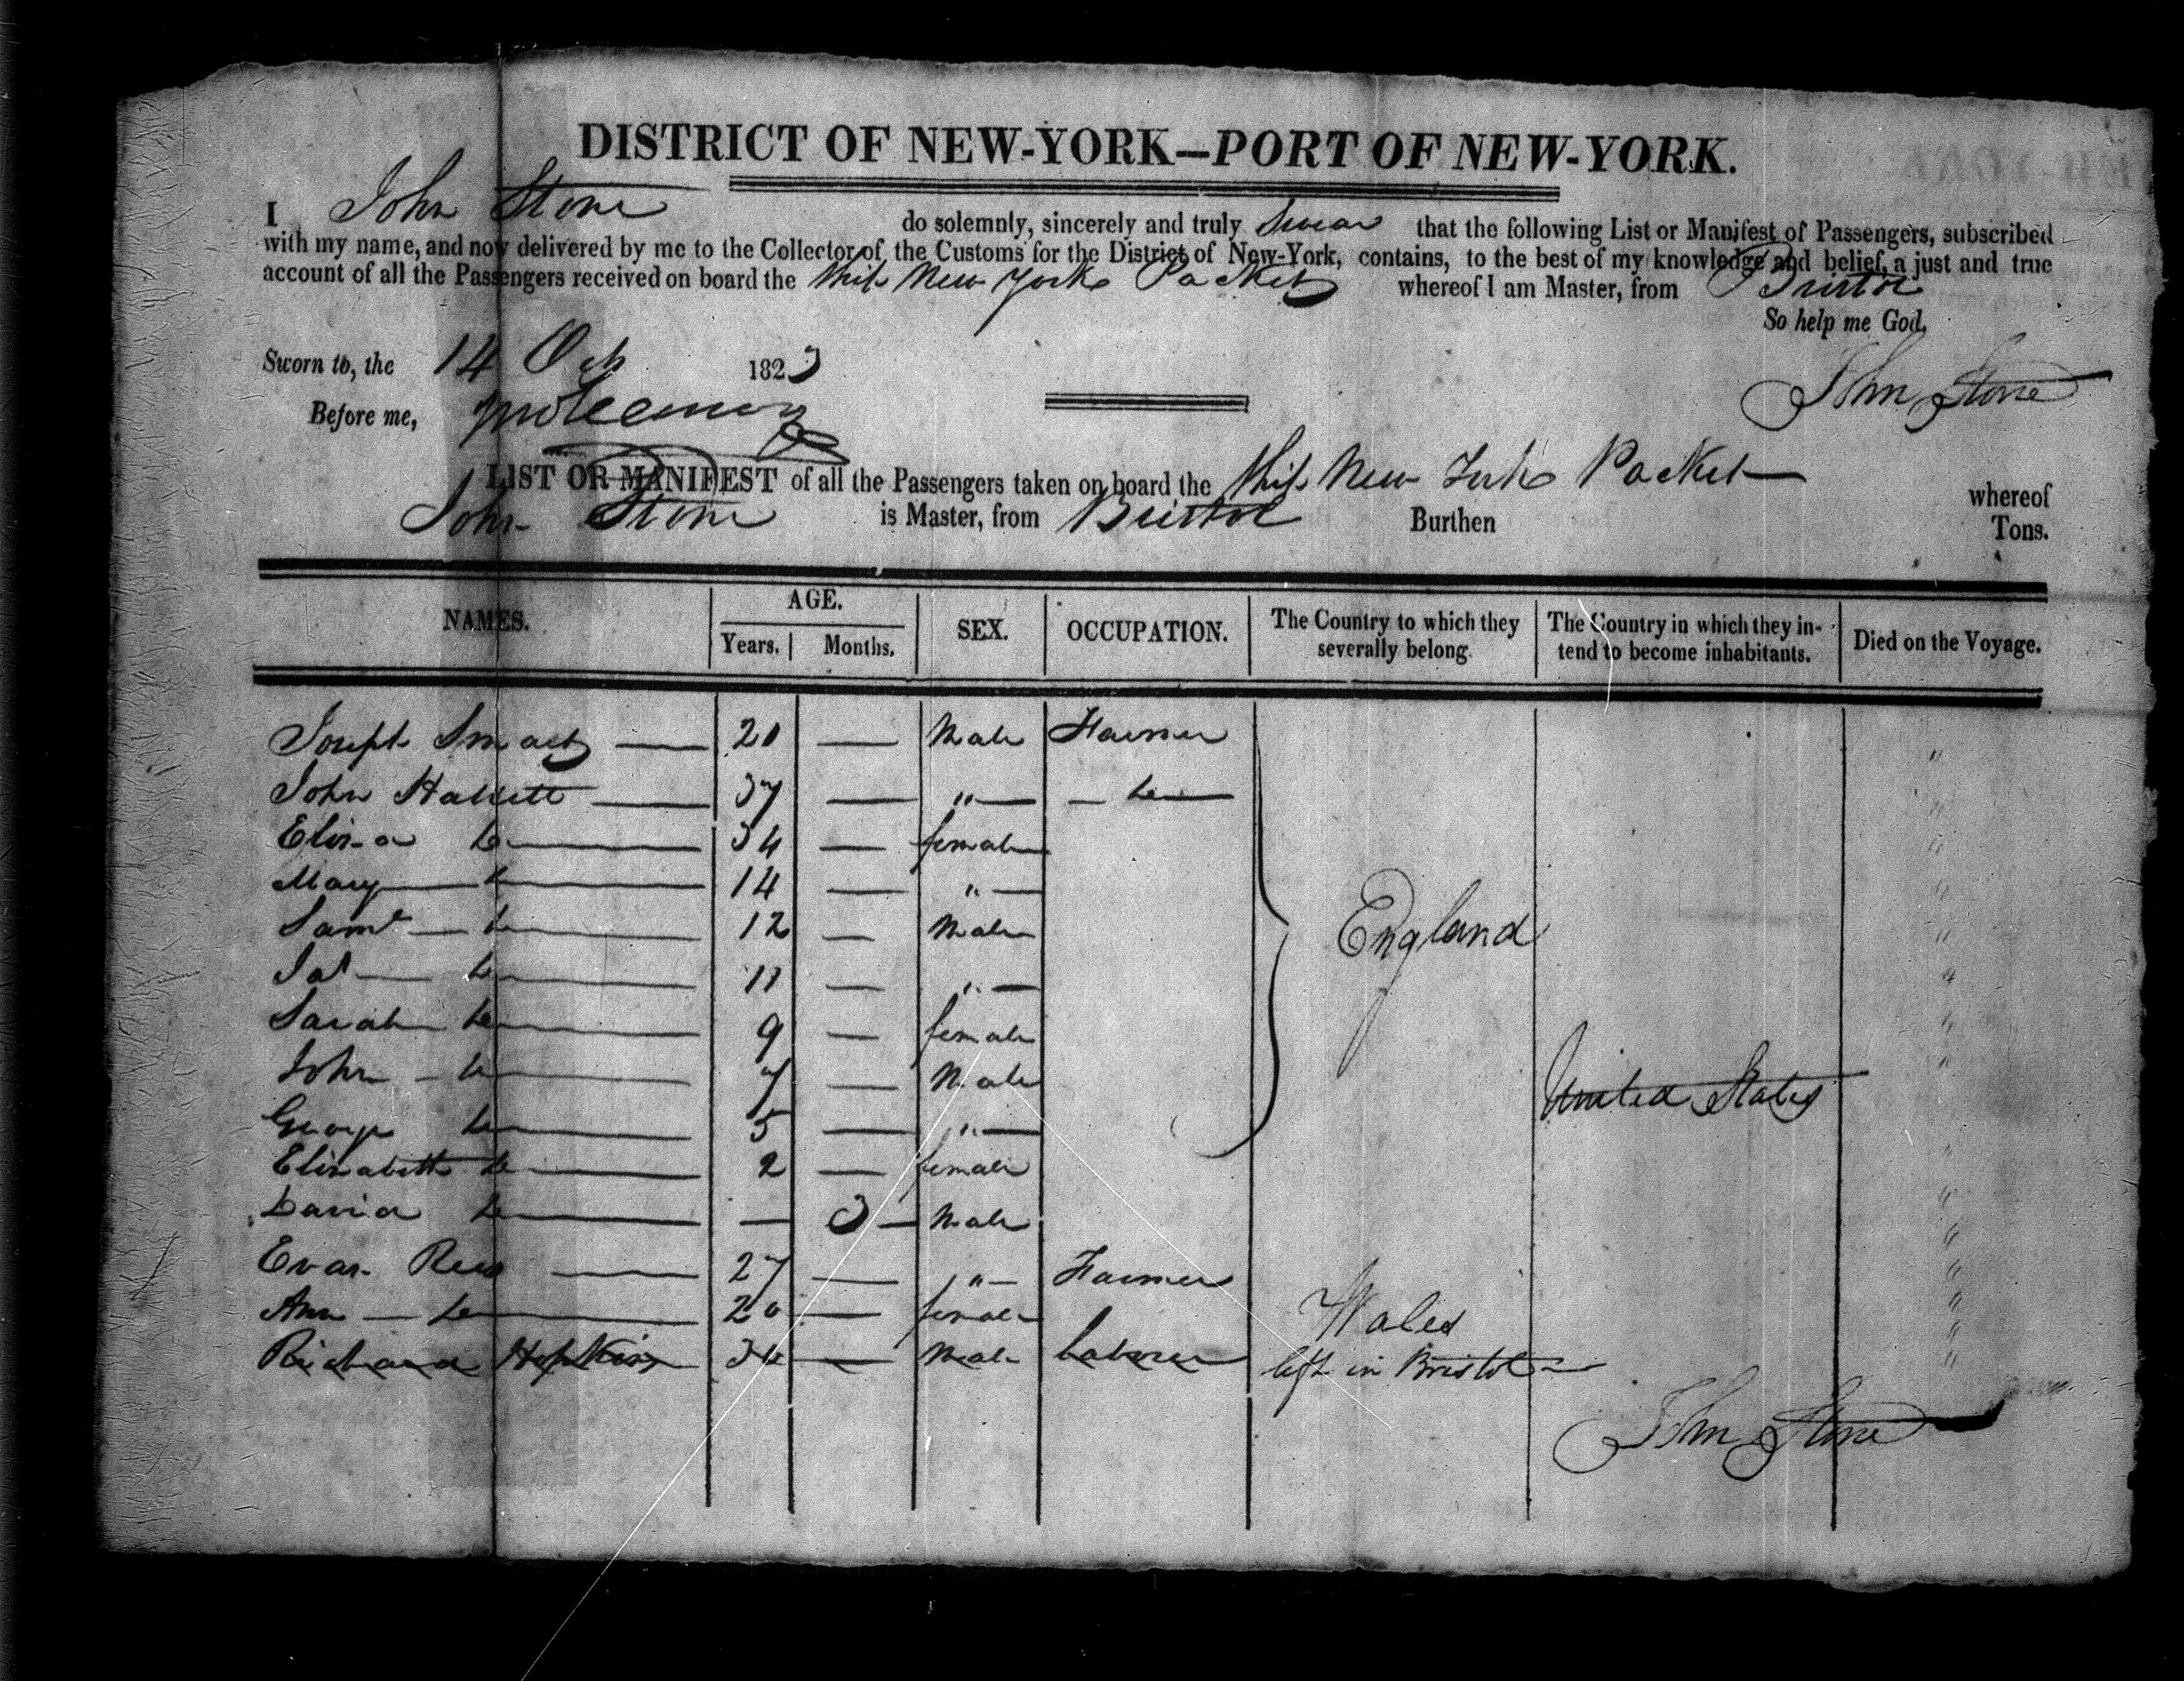 DISTRICT OF NEW-YORK—PORT OF NEW-YORK.
I John Stone do solemnly, sincerely and truly Swear that the following List or Manifest of Passengers, subscribed
with my name, and now delivered by me to the Collector of the Customs for the District of New-York, contains, to the best of my knowledge and belief, a just and true
account of all the Passengers received on board the Ship New York Packet whereof I am Master, from Bristol
So help me God,
Sworn to, the 14 Oct 1823
John Stone
Before me,
LIST OR MANIFEST of all the Passengers taken on board the Ship New York Packet whereof
John Stone is Master, from Bristol Burthen Tons.
NAMES. AGE. Years. Months. SEX. OCCUPATION. The Country to which they severally belong. The Country in which they intend to become inhabitants. Died on the Voyage.
Joseph Smart — 21 — Male Farmer "
John Hallett — 37 — " — Do — "
Eliza Do — 34 — female "
Mary — Do — 14 — " — "
Saml — Do — 12 — Male England "
Jas — Do — 11 — " — "
Sarah Do — 9 — female "
John — Do — 7 — Male United States "
George Do — 5 — " —
Elizabeth Do — 2 — female "
David Do — — 3 — Male "
Evan Rees — 27 — " — Farmer "
Ann — Do — 20 — female Wales "
Richard Hopkins 34 — Male Laborer left in Bristol — "
John Stone